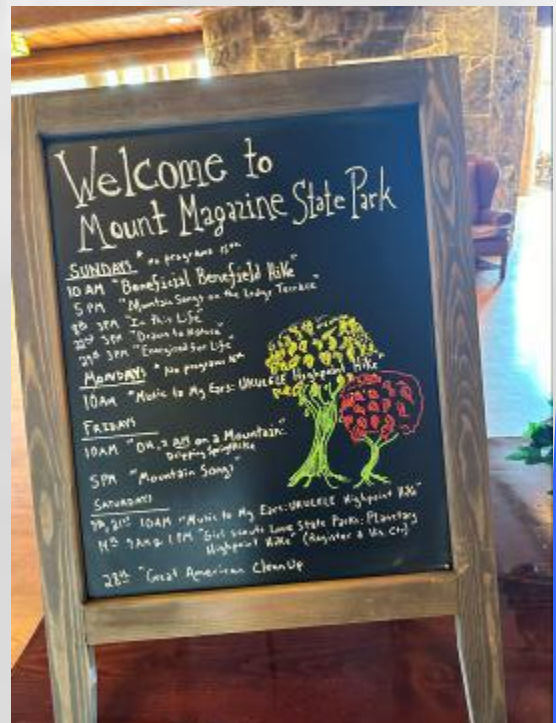 Welcome to
Mount Magazine State Park
SUNDAYS * no programs 15th
10 AM "Beneficial Benefield Hike"
5 PM "Mountain Songs on the Lodge Terrace"
8th 3PM "In This Life"
22nd 3PM "Drawn to Nature"
29th 3PM "Energized for Life"
MONDAYS * No programs
10AM "Music to My Ears: UKULELE Highpoint Hike"
FRIDAYS
10AM "Oh, I am on a Mountain"
Dripping Springs Hike
5PM "Mountain Songs"
SATURDAYS
21st 10AM "Music to My Ears: UKULELE Highpoint Hike"
14th 9AM & 1PM "Girl Scouts Love State Parks: Planetary
Highpoint Hike" (Register @ Vis. Ctr)
28th "Great American Clean Up